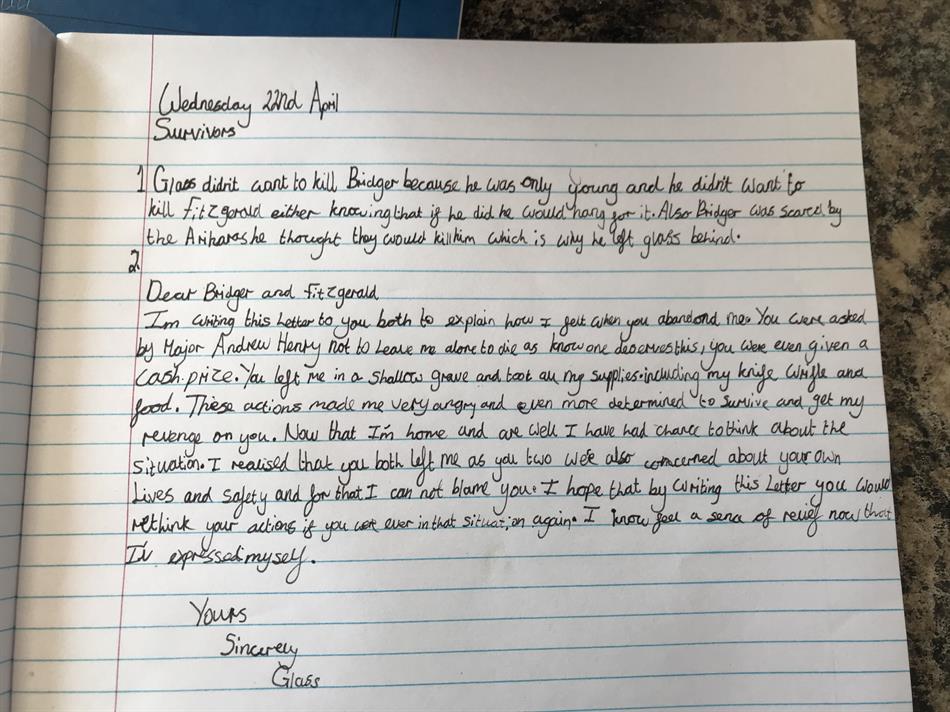 Wednesday 22nd April
Survivors
1 Glass didn't want to kill Bridger because he was only young and he didn't want to
kill Fitzgerald either knowing that if he did he would hang for it. Also Bridger was scared by
the Ariharas he thought they would kill him which is why he left glass behind.
2
Dear Bridger and Fitzgerald
I'm writing this Letter to you both to explain how I felt when you abandond me. You were asked
by Major Andrew Henry not to Leave me alone to die as know one deserves this, you were even given a
cash prize. You left me in a shallow grave and took all my supplies. including my knife Wrifle and
food. These actions made me very angry and even more determined to survive and get my
revenge on you. Now that I'm home and are well I have had chance to think about the
situation. I realised that you both left me as you two were also concerned about your own
Lives and safety and for that I can not blame you. I hope that by writing this Letter you would
rethink your actions if you were ever in that situation again. I know feel a sence of relief now that
I'v expressed myself.
Yours
Sincerely
Glass